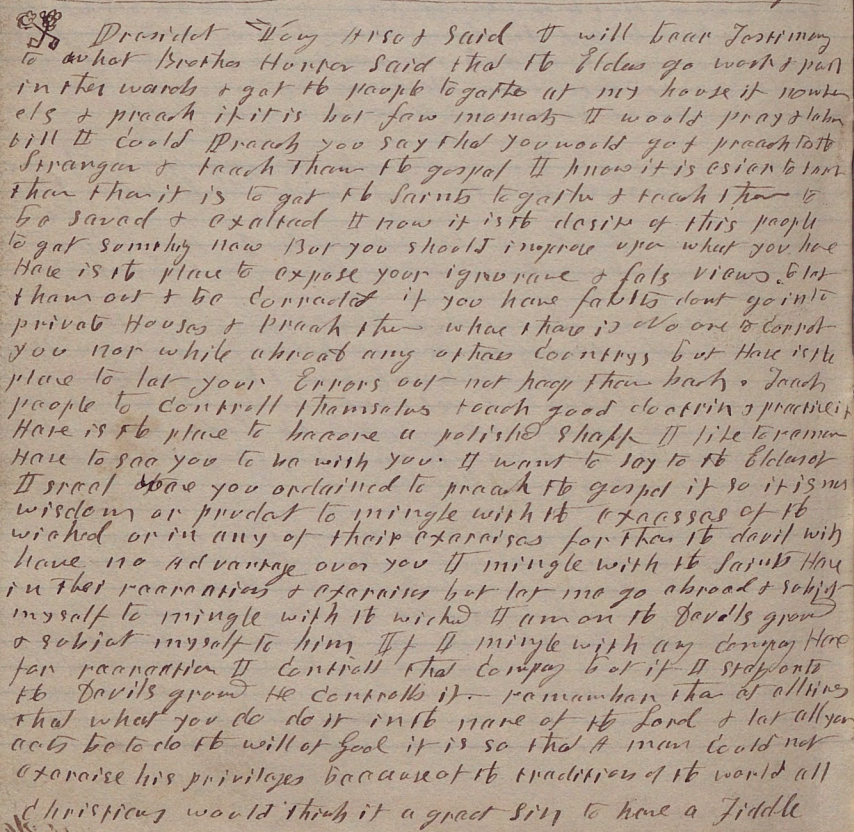 President Young Arose & Said I will bear Testimony
to what Brother Hunter Said that the Elders go work & pray
in ther wards & get the people togather at my house if nowher
els & preach if it is but few moments I would pray & labor
till I Could Preach you say that you would go & preach to the
Stranger & teach them the gospel I know it is esier to turn
than than it is to get the Saints togather & teach them to
be saved & exalted I now it is the desire of this people
to get somthig new But you should improve upon what you have
Here is the place to expose your ignorance & fals views. to let
them out & be Corrected if you have faults dont go into
private Houses & Preach them whare there is No one to Corret
you nor while abroad any others Countrys but Here is the
place to let your Errors out not keep them back. Teach
people to Controll themselves teach good doctrin & practice it
Here is the place to become a polished Shaft I like to
Here to see you to be with you. I want to say to the Elders of
Israel Were you ordained to preach the gospel if so it is not
wisdom or prudet to mingle with the excesses of the
wicked or in any of their exercises for then the devil will
have no Advantage over you I mingle with the Saints Here
in ther recreations & exercises but let me go abroad & subject
myself to mingle with the wicked I am on the Devils ground
& subject myself to him If I mingle with any Company Here
for recreation I Controll that Company but if I step onto
the Devils ground He Controlls it. remember then at all times
that what you do do it in the name of the Lord & let all your
acts be to do the will of God it is so that A man Could not
exercise his privileges because of the traditions of the world all
Christians would think it a great Sin to have a Fiddle